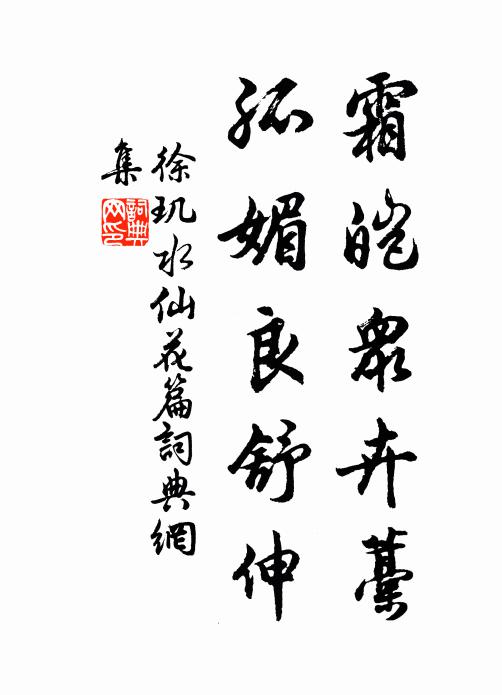 霜皚眾卉藁
孤媚良舒伸
徐玑水仙花篇詞典網
集
詞典网印